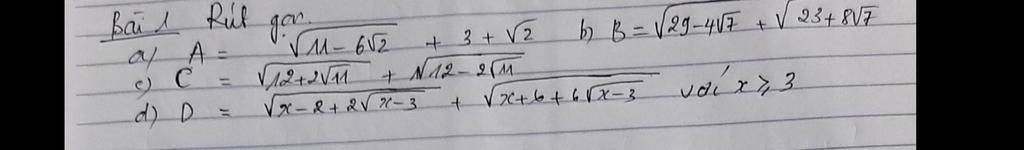 Bài 1 Rút gọn.
a) A = √(11 - 6√2) + 3 + √2 b) B = √(29 - 4√7) + √(23 + 8√7)
c) C = √(12 + 2√11) + √(12 - 2√11)
d) D = √(x - 2 + 2√(x - 3)) + √(x + 6 + 6√(x - 3)) với x ⩾ 3